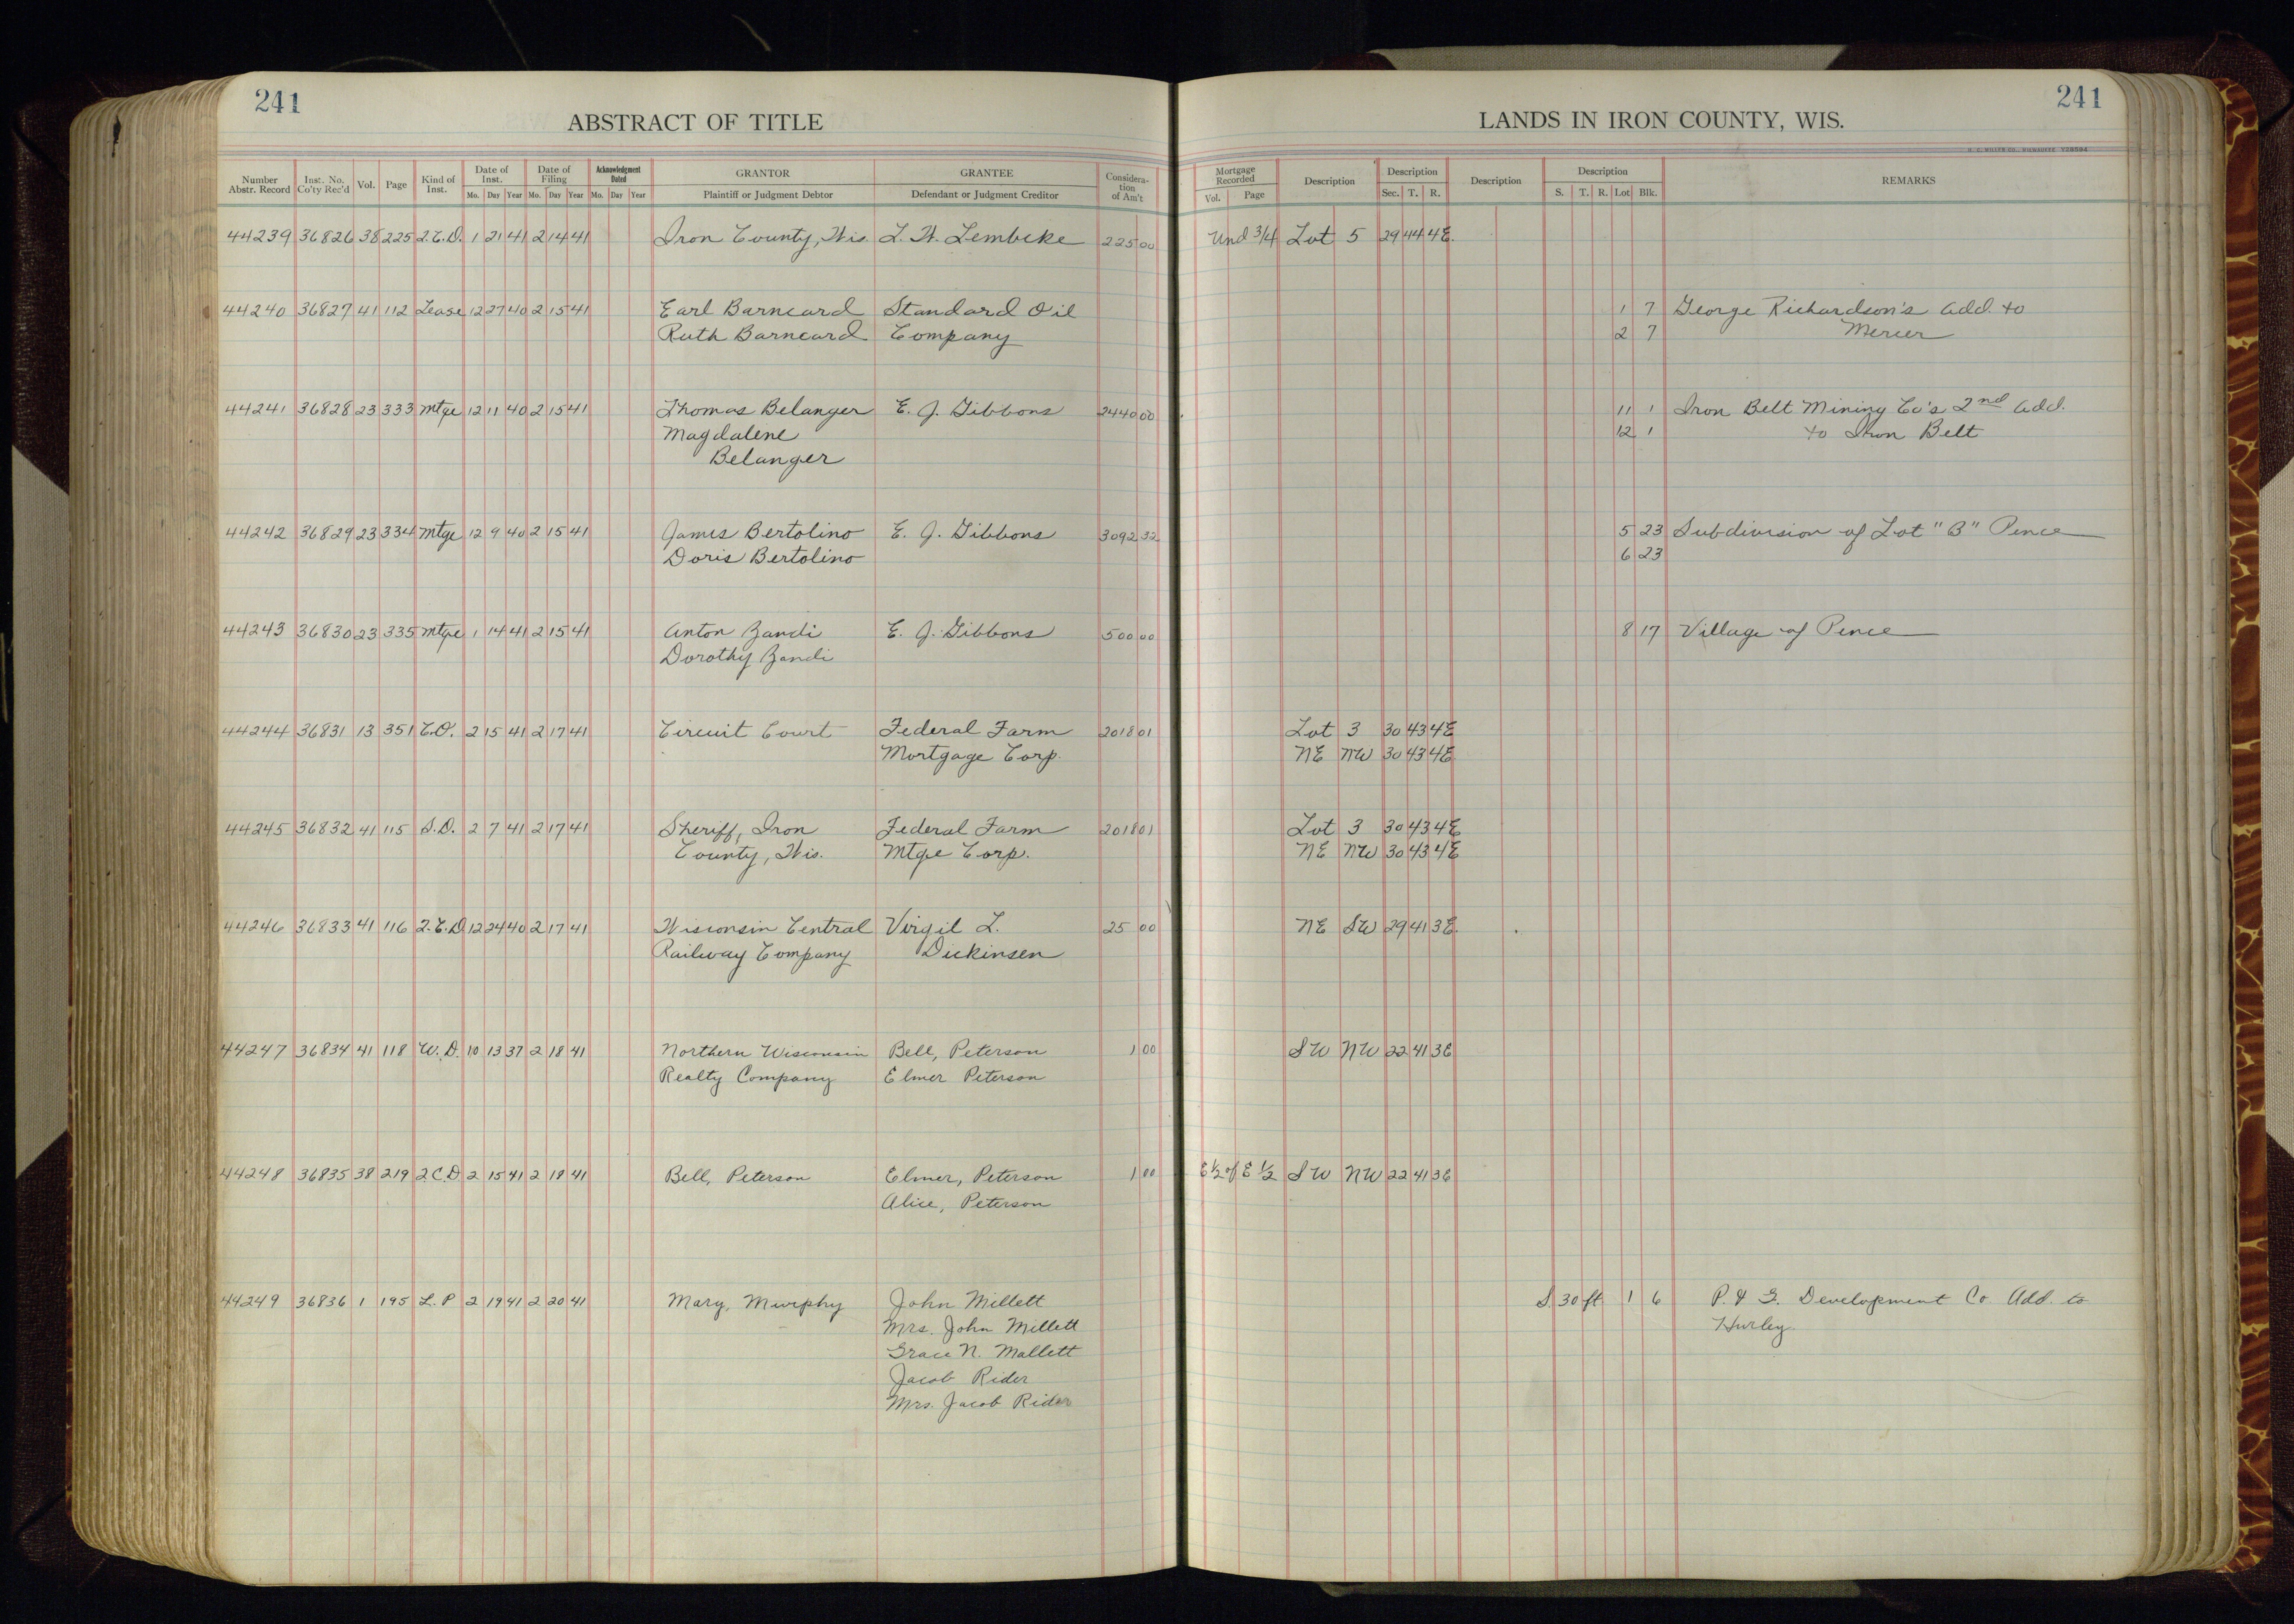 241
ABSTRACT OF TITLE
241
LANDS IN IRON COUNTY, WIS.
Number Abstr. Record | Inst. No. Co'ty Rec'd | Vol. | Page | Kind of Inst. | Date of Inst. Mo. Day Year | Date of Filing Mo. Day Year | Acknowledgment Dated Mo. Day Year | GRANTOR Plaintiff or Judgment Debtor | GRANTEE Defendant or Judgment Creditor | Consideration of Am't | Mortgage Recorded Vol. Page | Description | Description Sec. T. R. | Description | Description S. T. R. Lot Blk. | REMARKS
44239 36826 38 225 2.C.D. 1 21 41 2 14 41 Iron County, Wis. L. W. Lembcke 225 00 Und 3/4 Lot 5 29 44 4E.
44240 36827 41 112 Lease 12 27 40 2 15 41 Earl Barneard Standard Oil 1 7 George Richardson's Add. to
Ruth Barneard Company 2 7 Mercer
44241 36828 23 333 Mtge 12 11 40 2 15 41 Thomas Belanger E. J. Gibbons 2440 00 11 1 Iron Belt Mining Co's 2nd Add.
Magdalene 12 1 to Iron Belt
Belanger
44242 36829 23 334 Mtge 12 9 40 2 15 41 James Bertolino E. J. Gibbons 3092 32 5 23 Subdivision of Lot "B" Pence
Doris Bertolino 6 23
44243 36830 23 335 Mtge 1 14 41 2 15 41 Anton Zandi E. J. Gibbons 500 00 8 17 Village of Pence
Dorothy Zandi
44244 36831 13 351 C.O. 2 15 41 2 17 41 Circuit Court Federal Farm 2018 01 Lot 3 30 43 4E
Mortgage Corp. NE NW 30 43 4E
44245 36832 41 115 S.D. 2 7 41 2 17 41 Sheriff, Iron Federal Farm 2018 01 Lot 3 30 43 4E
County, Wis. Mtge Corp. NE NW 30 43 4E
44246 36833 41 116 2.C.D 12 24 40 2 17 41 Wisconsin Central Virgil L. 25 00 NE SW 29 41 3E.
Railway Company Dickinsen
44247 36834 41 118 W.D. 10 13 37 2 18 41 Northern Wisconsin Bell, Peterson 1 00 SW NW 22 41 3E
Realty Company Elmer Peterson
44248 36835 38 219 2.C.D 2 15 41 2 18 41 Bell, Peterson Elmer, Peterson 1 00 E 1/2 of E 1/2 SW NW 22 41 3E
Alice, Peterson
44249 36836 1 195 L.P 2 19 41 2 20 41 Mary, Murphy John Millett S. 30 ft. 1 6 P. & G. Development Co Add. to
Mrs. John Millett Hurley.
Grace N. Mallett
Jacob Rider
Mrs. Jacob Rider